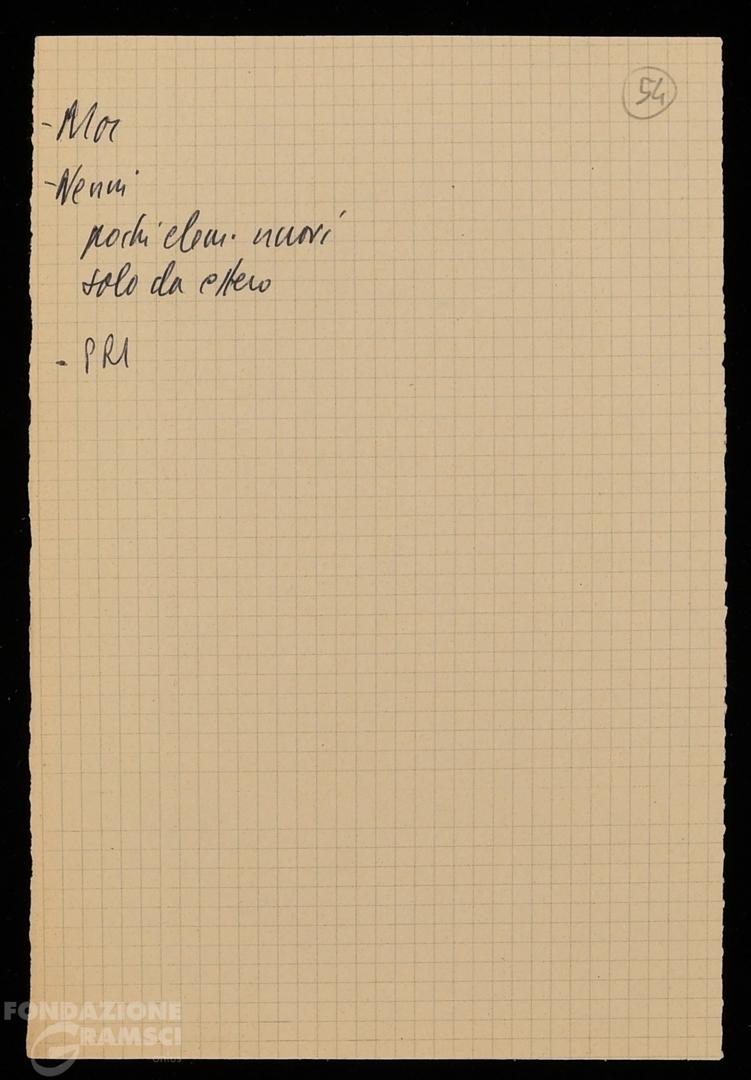 54
- Mor
- Nenni
pochi elem. nuovi
solo da estero
- PRI
FONDAZIONE
GRAMSCI
ONLUS